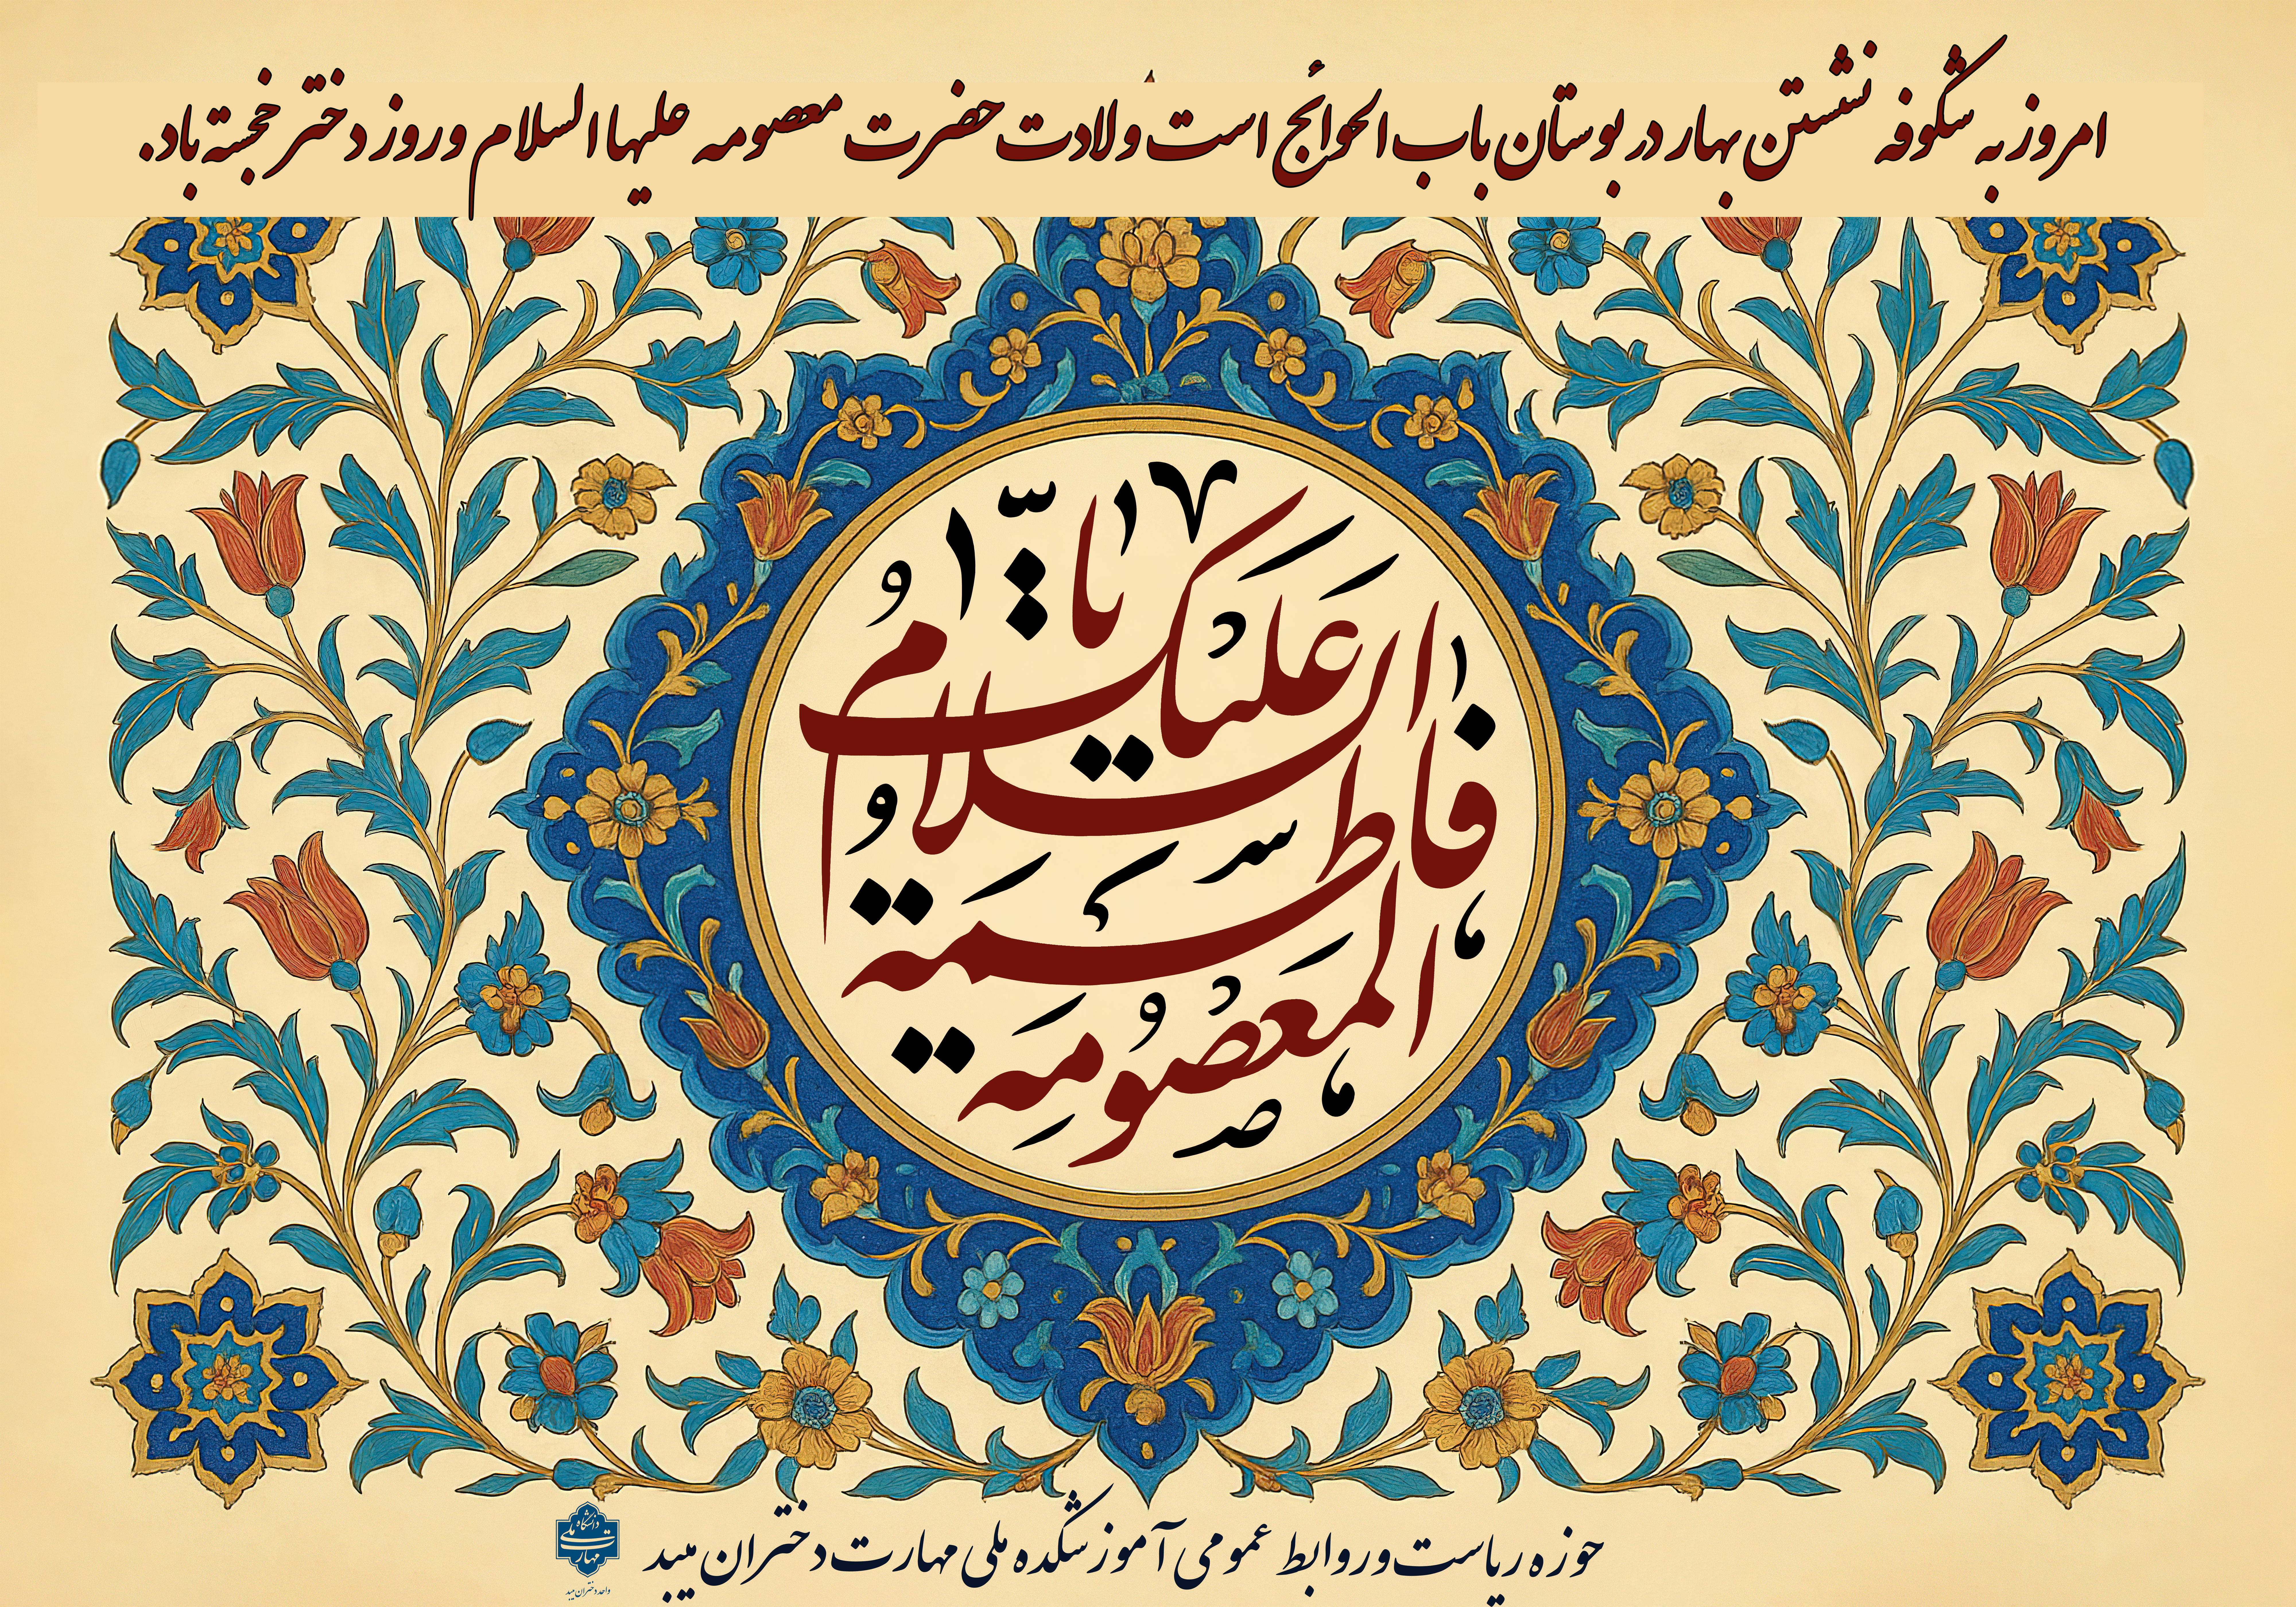 امروز به شکوفه نشستن بهار در بوستان باب الحوائج است ولادت حضرت معصومه علیها السلام و روز دختر خجسته باد.
السلام علیک یا
فاطمة
المعصومة
حوزه ریاست و روابط عمومی آموزشکده ملی مهارت دختران میبد
دانشگاه ملی مهارت
واحد دختران میبد